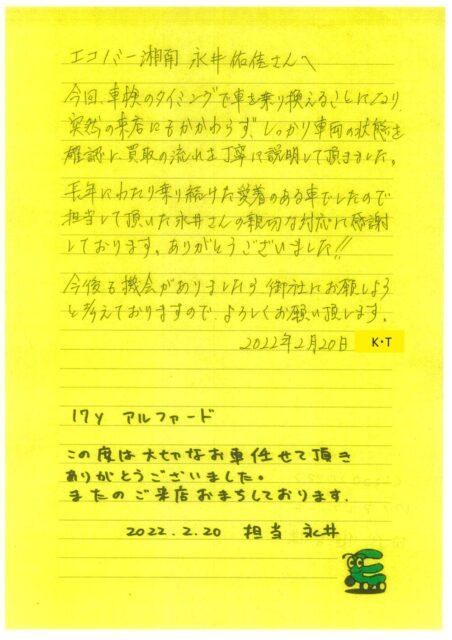 エコノバー湘南 永井佑佳さんへ
今回、車検のタイミングで車を乗り換えることになり
突然の来店にもかかわらず、しっかり車両の状態を
確認し、買取の流れを丁寧に説明して頂きました。
長年にわたり乗り続けた愛着のある車でしたので
担当して頂いた永井さんの親切な対応に感謝
しております。ありがとうございました!!
今後も機会がありましたら御社にお願しよう
と考えておりますので、よろしくお願い致します。
2022年2月20日 K・T
17y アルファード
この度は大切なお車任せて頂き
ありがとうございました。
またのご来店おまちしております。
2022.2.20 担当 永井